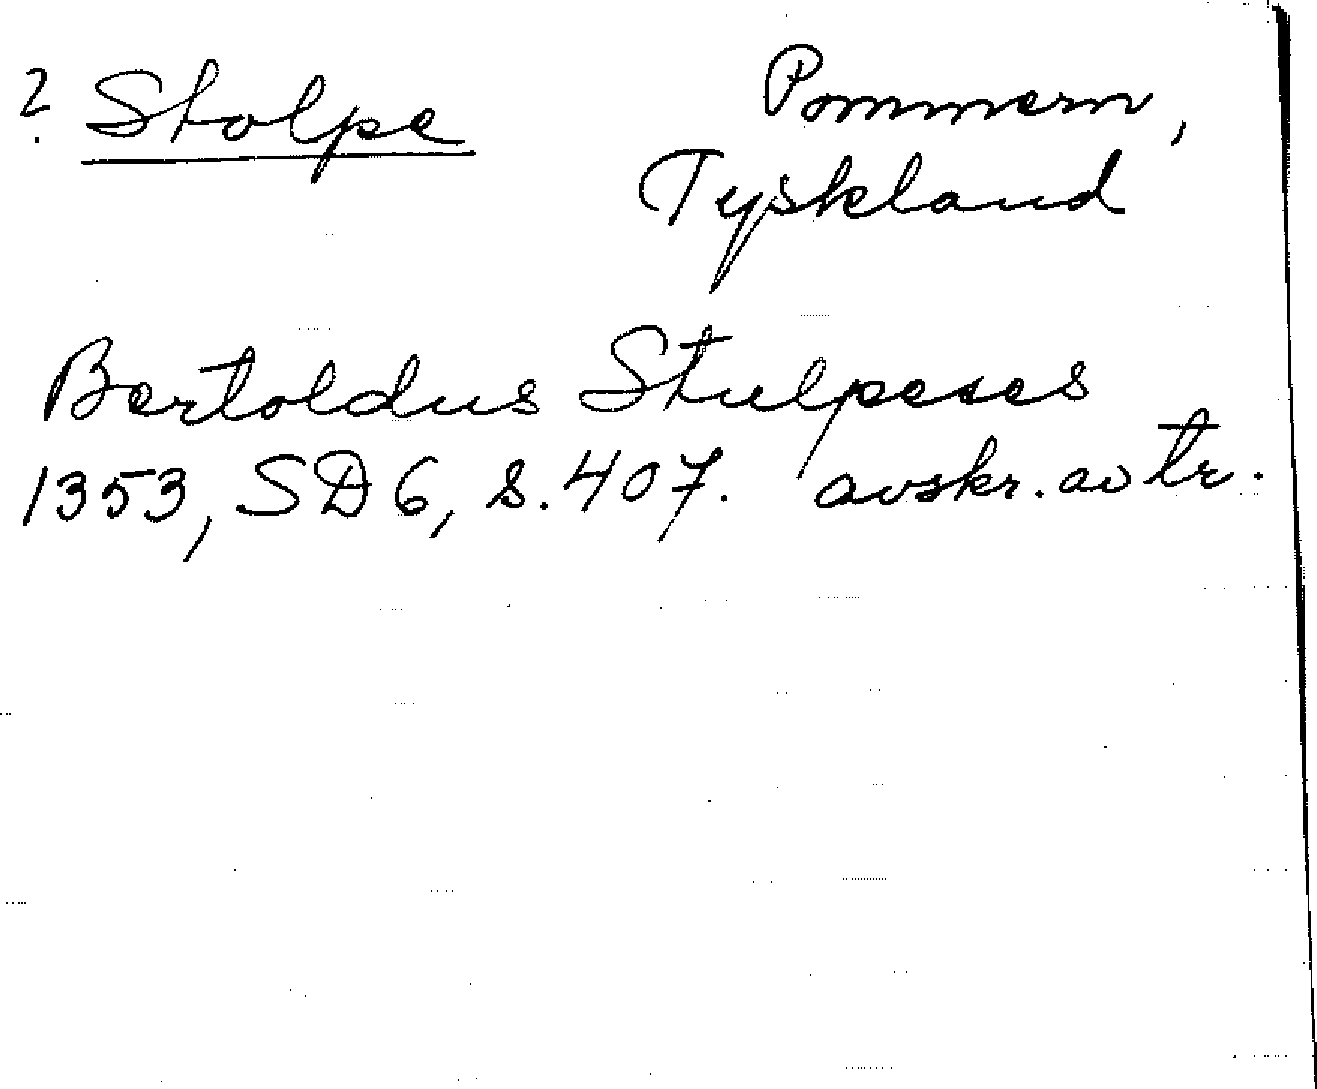 ? Stolpe
Pommern,
Tyskland
Bertoldus Stulpeses
1353, SD 6, s. 407. avskr. av tr.